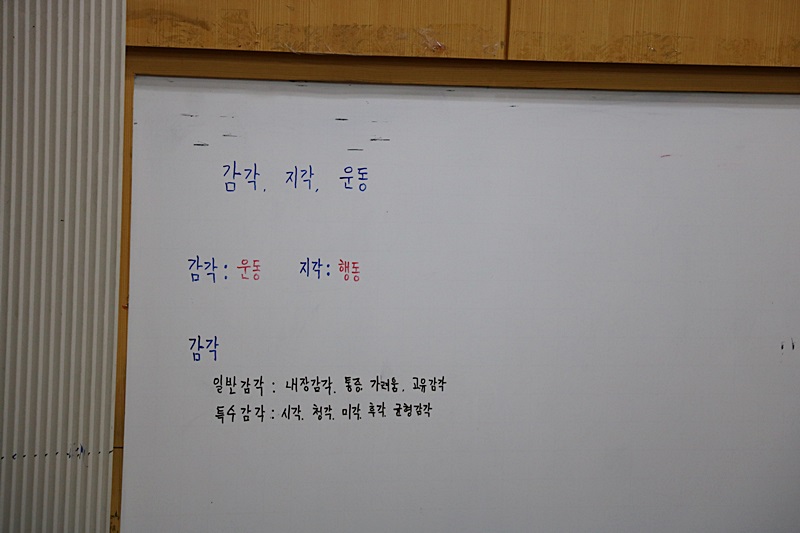 감각, 지각, 운동
감각 : 운동 지각 : 행동
감각
일반감각 : 내장감각, 통증, 가려움, 고유감각
특수감각 : 시각, 청각, 미각, 후각, 균형감각